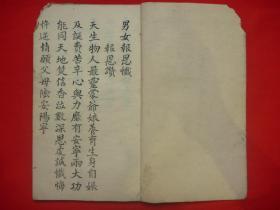 男女報恩懺
報恩讚
天生物人最靈蒙爺娘養育生身自娠
及誕費苦辛心與力靡有安寧兩大功
能同天地焚信香泣數深恩虔誠懺悔
忤逆情願父母陰安陽寧